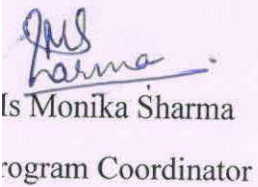 Sharma
Is Monika Sharma
rogram Coordinator